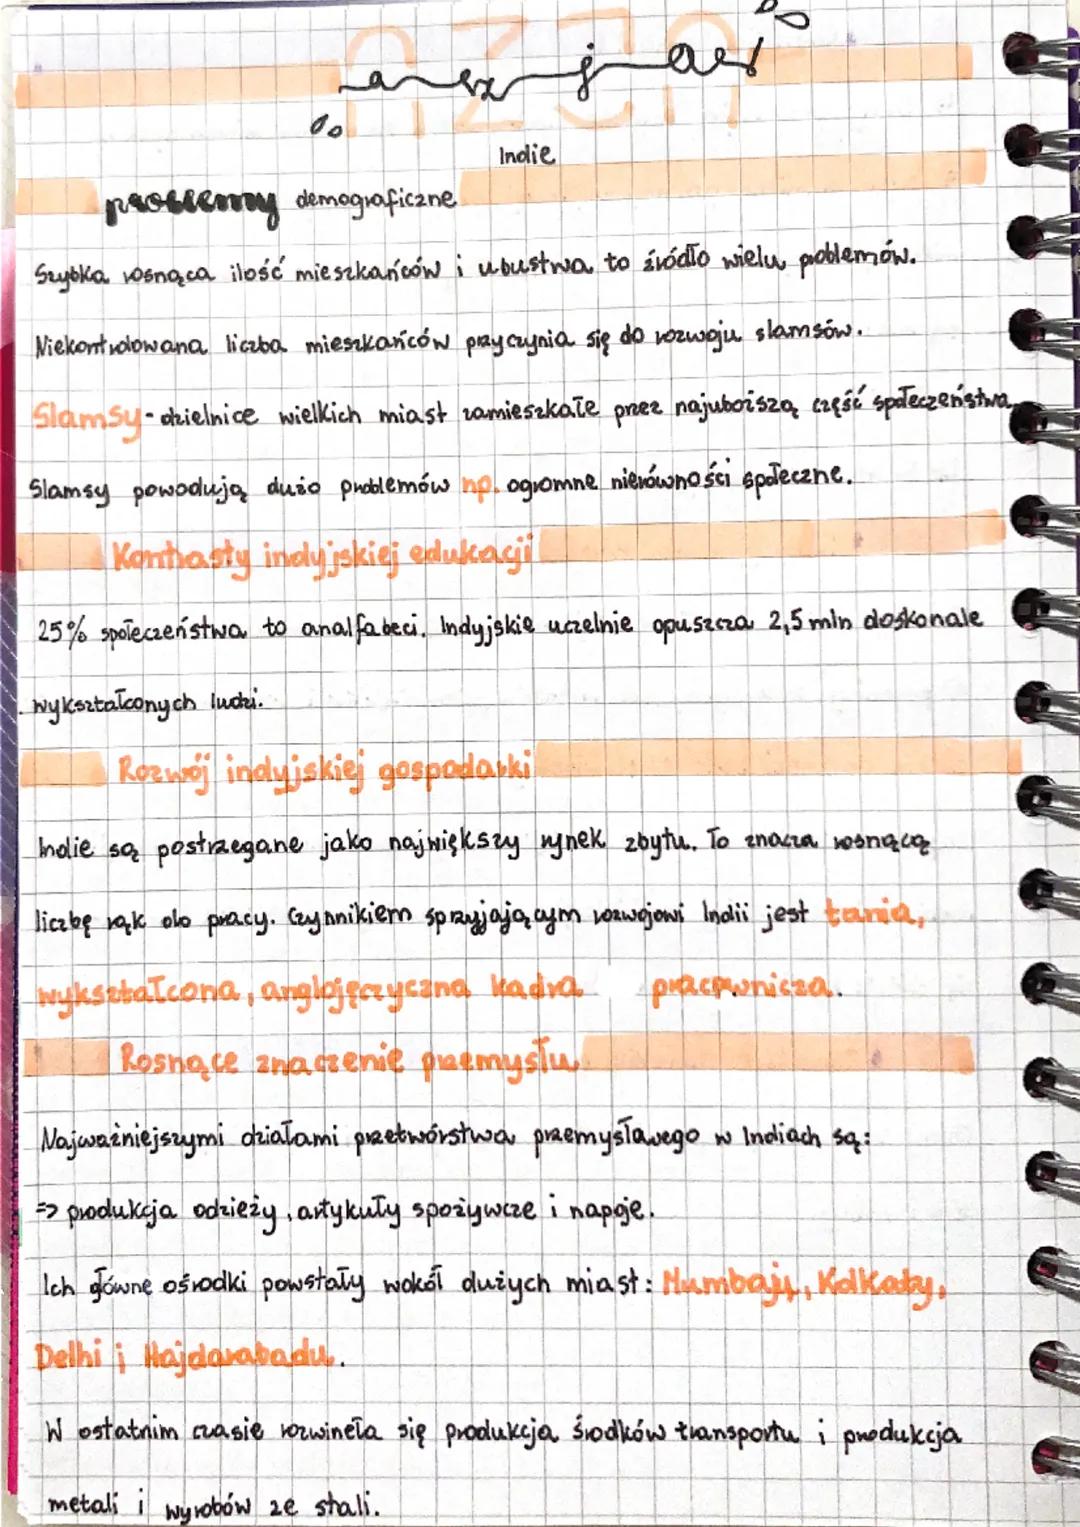 AZJA
azja
Indie
problemy demograficzne
Szybka rosnąca ilość mieszkańców i ubustwa to źródło wielu problemów.
Niekontrolowana liczba mieszkańców przyczynia się do rozwoju slamsów.
Slamsy - dzielnice wielkich miast zamieszkałe przez najuboższą część społeczeństwa.
Slamsy powodują dużo problemów np. ogromne nierówności społeczne.
Kontrasty indyjskiej edukacji
25% społeczeństwa to analfabeci. Indyjskie uczelnie opuszcza 2,5 mln doskonale
wykształconych ludzi.
Rozwój indyjskiej gospodarki
Indie są postrzegane jako największy rynek zbytu. To znacza rosnącą
liczbę rąk do pracy. Czynnikiem sprzyjającym rozwojowi Indii jest tania,
wykształcona, anglojęzyczna kadra pracownicza.
Rosnące znaczenie przemysłu
Najważniejszymi działami przetwórstwa przemysłowego w Indiach są:
=> produkcja odzieży, artykuły spożywcze i napoje.
Ich główne ośrodki powstały wokół dużych miast: Mumbaju, Kolkaty,
Delhi i Hajdarabadu.
W ostatnim czasie rozwineła się produkcja środków transportu i produkcja
metali i wyrobów ze stali.